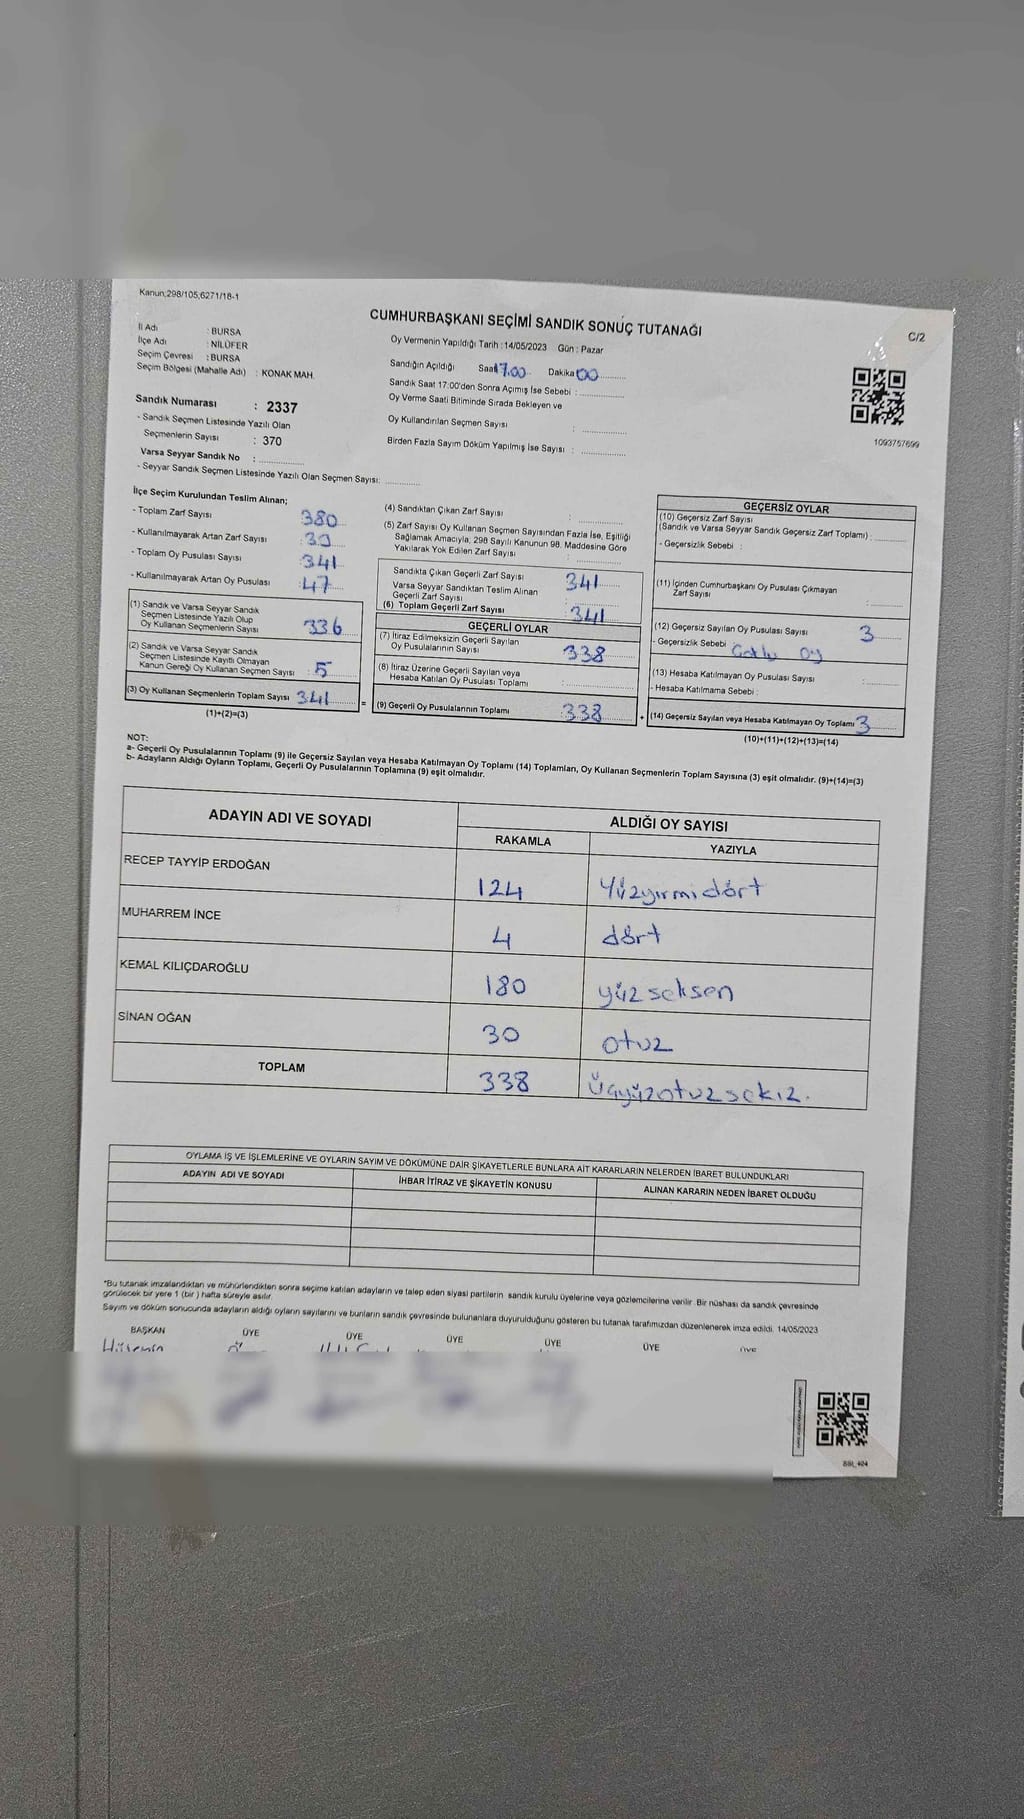 Kanun;298/105,6271/18-1
CUMHURBAŞKANI SEÇİMİ SANDIK SONUÇ TUTANAĞI
C/2
İl Adı : BURSA
İlçe Adı : NİLÜFER
Seçim Çevresi : BURSA
Seçim Bölgesi (Mahalle Adı) : KONAK MAH.
Oy Vermenin Yapıldığı Tarih : 14/05/2023 Gün : Pazar
Sandığın Açıldığı Saat 17.00 Dakika 00
Sandık Saat 17:00'den Sonra Açımış İse Sebebi :
Oy Verme Saati Bitiminde Sırada Bekleyen ve
Oy Kullandırılan Seçmen Sayısı :
Birden Fazla Sayım Döküm Yapılmış İse Sayısı :
1093757699
Sandık Numarası : 2337
- Sandık Seçmen Listesinde Yazılı Olan
Seçmenlerin Sayısı : 370
Varsa Seyyar Sandık No :
- Seyyar Sandık Seçmen Listesinde Yazılı Olan Seçmen Sayısı:
İlçe Seçim Kurulundan Teslim Alınan;
- Toplam Zarf Sayısı 380
- Kullanılmayarak Artan Zarf Sayısı 39
- Toplam Oy Pusulası Sayısı 341
- Kullanılmayarak Artan Oy Pusulası 47
(1) Sandık ve Varsa Seyyar Sandık
Seçmen Listesinde Yazılı Olup
Oy Kullanan Seçmenlerin Sayısı 336
(2) Sandık ve Varsa Seyyar Sandık
Seçmen Listesinde Kayıtlı Olmayan
Kanun Gereği Oy Kullanan Seçmen Sayısı : 5
(3) Oy Kullanan Seçmenlerin Toplam Sayısı 341
(1)+(2)=(3)
(4) Sandıktan Çıkan Zarf Sayısı :
(5) Zarf Sayısı Oy Kullanan Seçmen Sayısından Fazla İse, Eşitliği
Sağlamak Amacıyla; 298 Sayılı Kanunun 98. Maddesine Göre
Yakılarak Yok Edilen Zarf Sayısı :
Sandıkta Çıkan Geçerli Zarf Sayısı 341
Varsa Seyyar Sandıktan Teslim Alınan
Geçerli Zarf Sayısı
(6) Toplam Geçerli Zarf Sayısı 341
GEÇERLİ OYLAR
(7) İtiraz Edilmeksizin Geçerli Sayılan
Oy Pusulalarının Sayısı 338
(8) İtiraz Üzerine Geçerli Sayılan veya
Hesaba Katılan Oy Pusulası Toplamı :
= (9) Geçerli Oy Pusulalarının Toplamı 338
GEÇERSİZ OYLAR
(10) Geçersiz Zarf Sayısı
(Sandık ve Varsa Seyyar Sandık Geçersiz Zarf Toplamı) :
- Geçersizlik Sebebi :
(11) İçinden Cumhurbaşkanı Oy Pusulası Çıkmayan
Zarf Sayısı :
(12) Geçersiz Sayılan Oy Pusulası Sayısı 3
- Geçersizlik Sebebi oy
(13) Hesaba Katılmayan Oy Pusulası Sayısı :
- Hesaba Katılmama Sebebi :
+ (14) Geçersiz Sayılan veya Hesaba Katılmayan Oy Toplamı 3
(10)+(11)+(12)+(13)=(14)
NOT:
a- Geçerli Oy Pusulalarının Toplamı (9) ile Geçersiz Sayılan veya Hesaba Katılmayan Oy Toplamı (14) Toplamları, Oy Kullanan Seçmenlerin Toplam Sayısına (3) eşit olmalıdır. (9)+(14)=(3)
b- Adayların Aldığı Oyların Toplamı, Geçerli Oy Pusulalarının Toplamına (9) eşit olmalıdır.
ADAYIN ADI VE SOYADI
ALDIĞI OY SAYISI
RAKAMLA YAZIYLA
RECEP TAYYİP ERDOĞAN 124 Yüzyirmidört
MUHARREM İNCE 4 dört
KEMAL KILIÇDAROĞLU 180 yüzseksen
SİNAN OĞAN 30 otuz
TOPLAM 338 üçyüzotuzsekiz.
OYLAMA İŞ VE İŞLEMLERİNE VE OYLARIN SAYIM VE DÖKÜMÜNE DAİR ŞİKAYETLERLE BUNLARA AİT KARARLARIN NELERDEN İBARET BULUNDUKLARI
ADAYIN ADI VE SOYADI İHBAR İTİRAZ VE ŞİKAYETİN KONUSU ALINAN KARARIN NEDEN İBARET OLDUĞU
*Bu tutanak imzalandıktan ve mühürlendikten sonra seçime katılan adayların ve talep eden siyasi partilerin sandık kurulu üyelerine veya gözlemcilerine verilir. Bir nüshası da sandık çevresinde
görülecek bir yere 1 (bir ) hafta süreyle asılır.
Sayım ve döküm sonucunda adayların aldığı oyların sayılarını ve bunların sandık çevresinde bulunanlara duyurulduğunu gösteren bu tutanak tarafımızdan düzenlenerek imza edildi. 14/05/2023
BAŞKAN ÜYE ÜYE ÜYE ÜYE ÜYE ÜYE